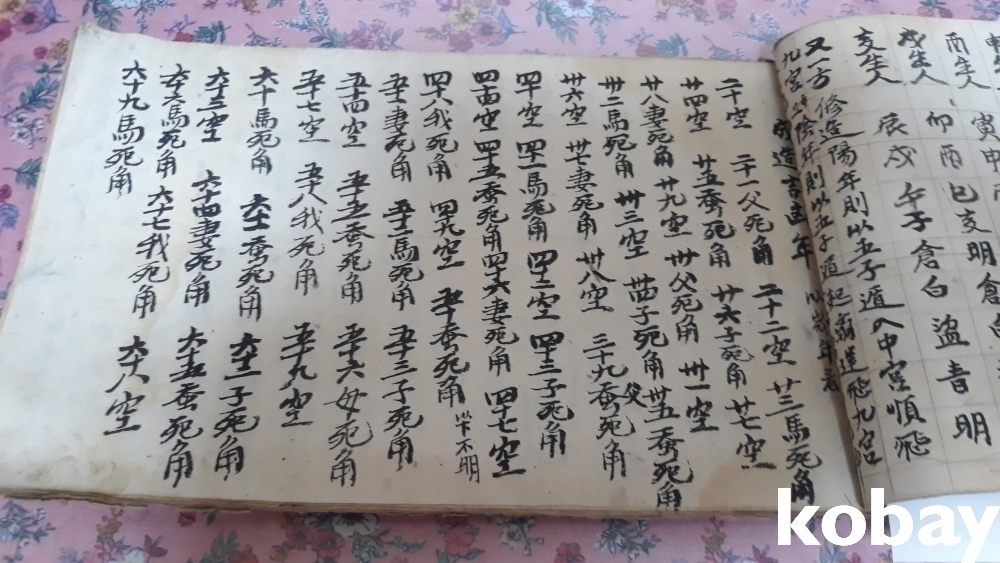 酉生人 寅申
戌生人 卯酉巳亥明倉
亥生人 辰戌午子倉白盜音明
又一方修造陽年則以五子遁入中宮順飛
九宮陰年則以五子遁起 逆飛九宮
成造吉凶年
二十空 二十一父死角 二十二空 廿三馬死角
廿四空 廿五蚕死角 廿六子死角 廿七空
廿八妻死角 卅九空 卅父死角 卅一空
卅二馬死角 卅三空 卅四子死角 卅五蚕死角
卅六空 卅七妻死角 卅八空 三十九蚕死角
四十空 四十一馬死角 四十二空 四十三子死角
四十四空 四十五蚕死角 四十六妻死角 四十七空
四十八我死角 四十九空 五十蚕死角 以下不明
五十一妻死角 五十二馬死角 五十三子死角
五十四空 五十五蚕死角 五十六母死角
五十七空 五十八我死角 五十九空
六十馬死角 六十一蚕死角 六十二子死角
六十三空 六十四妻死角 六十五蚕死角
六十六馬死角 六十七我死角 六十八空
六十九馬死角
kobay